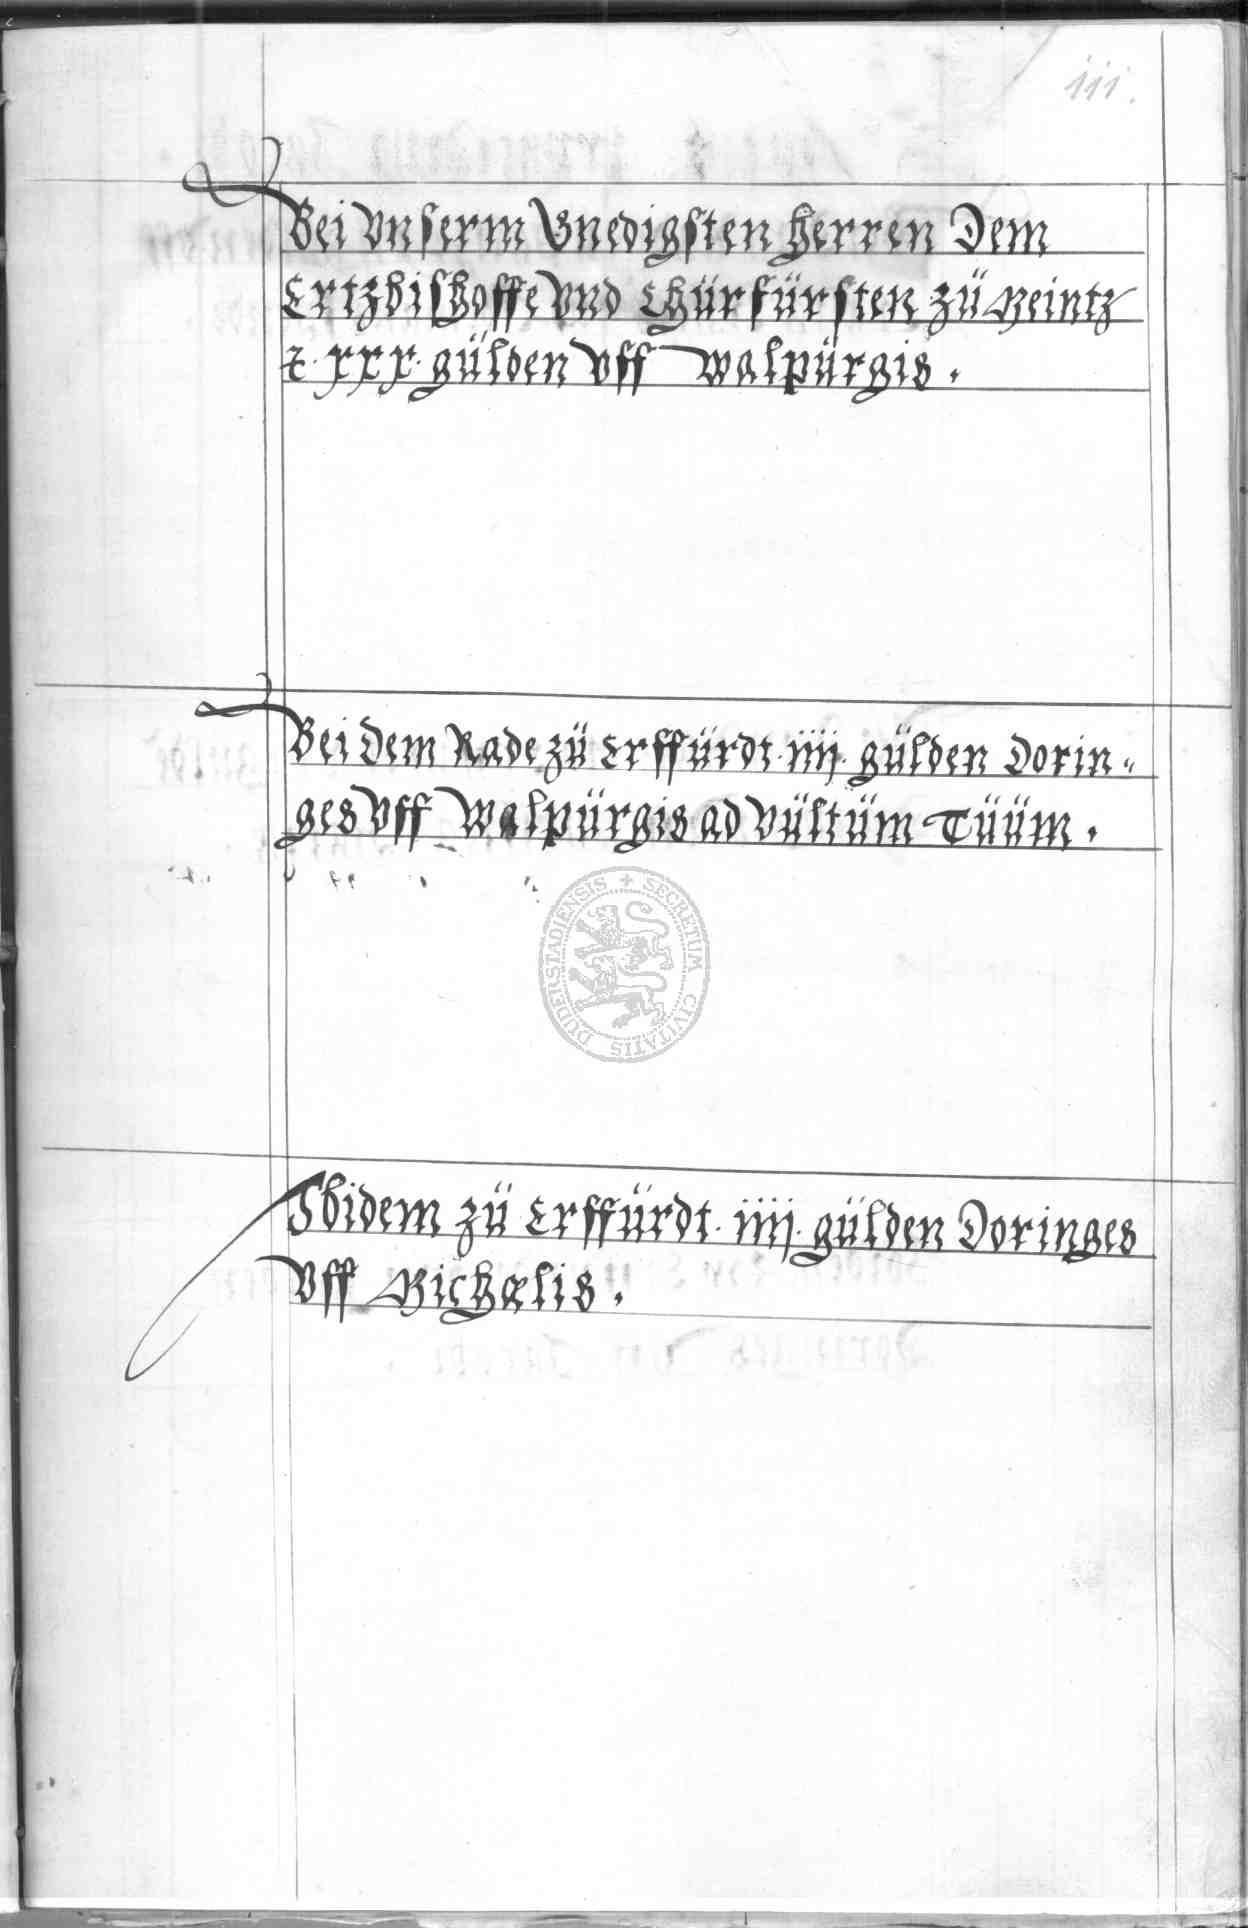 iii.
Bei Vnserm Gnedigsten Herren Dem
Ertzbishoffe Vnd Chürfürsten zü Meintz
xxx. gülden Vff Walpürgis.
Bei Dem Rade zü Erffürdt. iiij. gülden Dorin„
ges Vff Walpürgis ad Vültüm Tüüm.
DUDERSTADIENSIS + SECRETUM CIVITATIS
Ibidem zü Erffürdt. iiij. gülden Doringes
Vff Michælis.